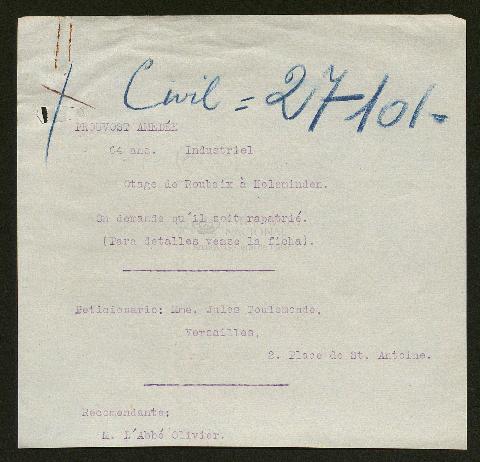 Civil = 27-101-
PROUVOST AMEDÉE
64 ans. Industriel
Otage de Roubaix à Holsminden.
On demande qu'il soit rapatrié.
(Para detalles vease la ficha).
Peticionario: Mme. Jules Toulemonde,
Versailles,
2. Place de St. Antoine.
Recomendante:
M. L'Abbé Olivier.